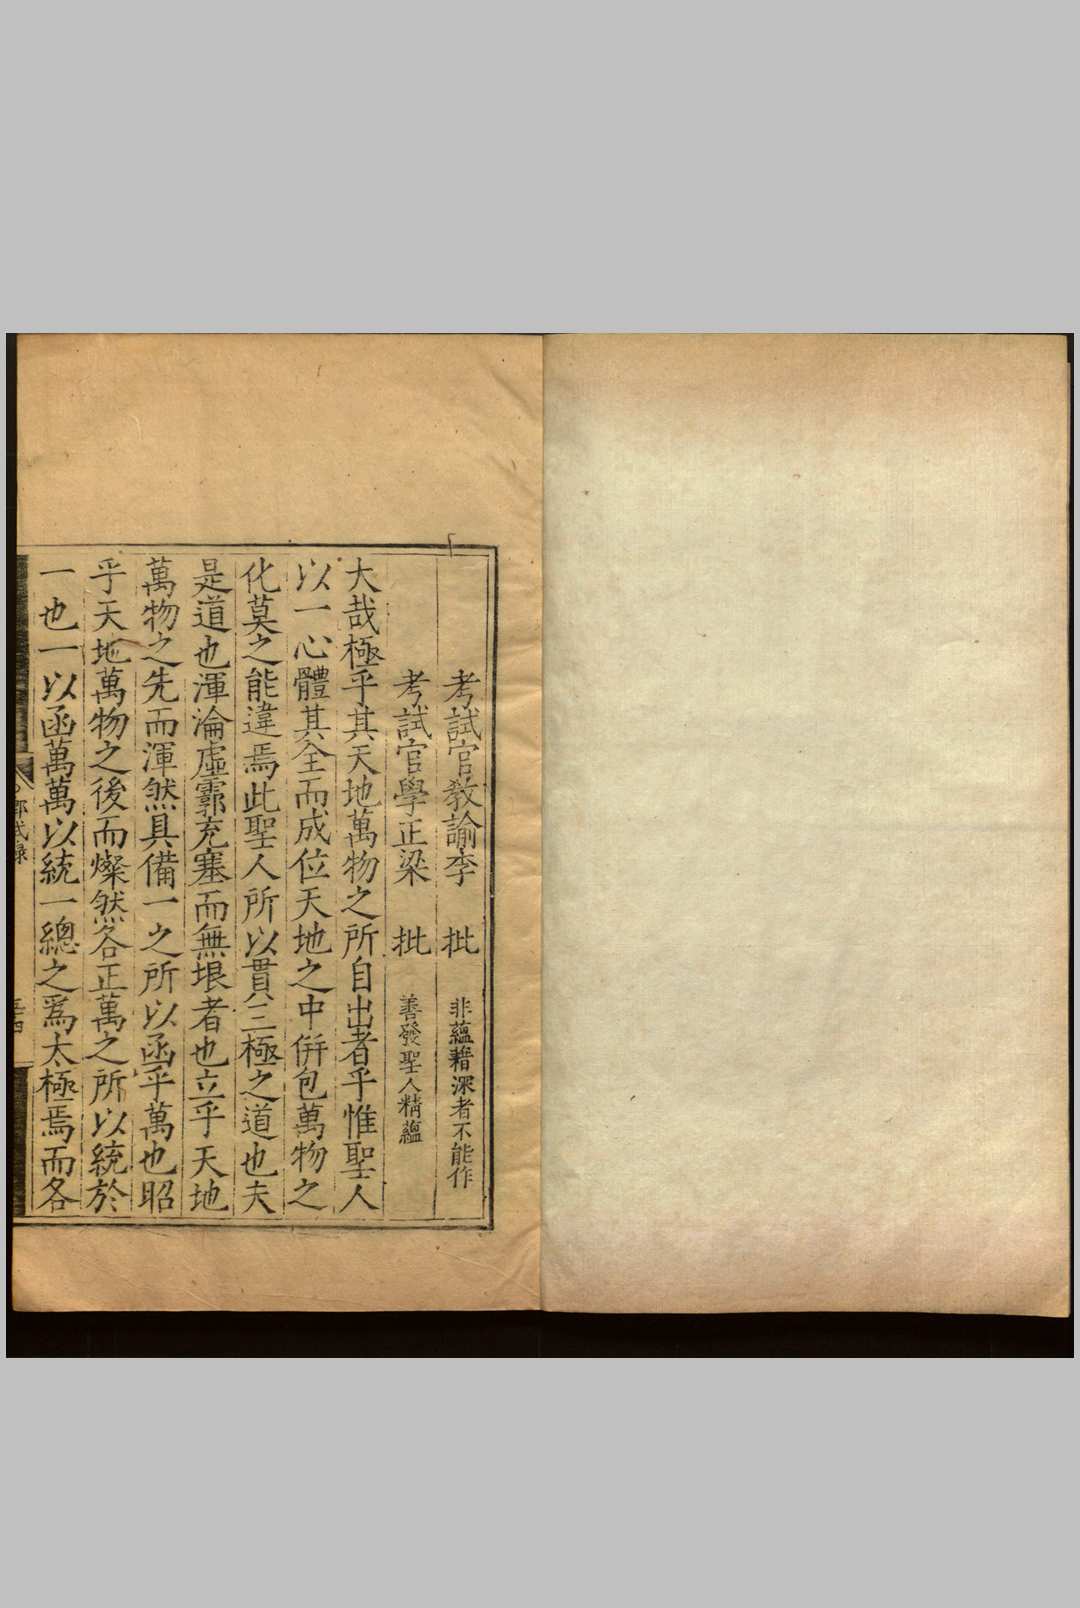 考試官教諭李　批　非蘊藉深者不能作
考試官學正梁　批　善發聖人精蘊
大哉極乎其天地萬物之所自出者乎惟聖人
以一心體其全而成位天地之中併包萬物之
化莫之能違焉此聖人所以貫三極之道也夫
是道也渾淪虛霩充塞而無垠者也立乎天地
萬物之先而渾然具備一之所以函乎萬也昭
乎天地萬物之後而燦然各正萬之所以統於
一也一以函萬萬以統一總之爲太極焉而各
鄉試録